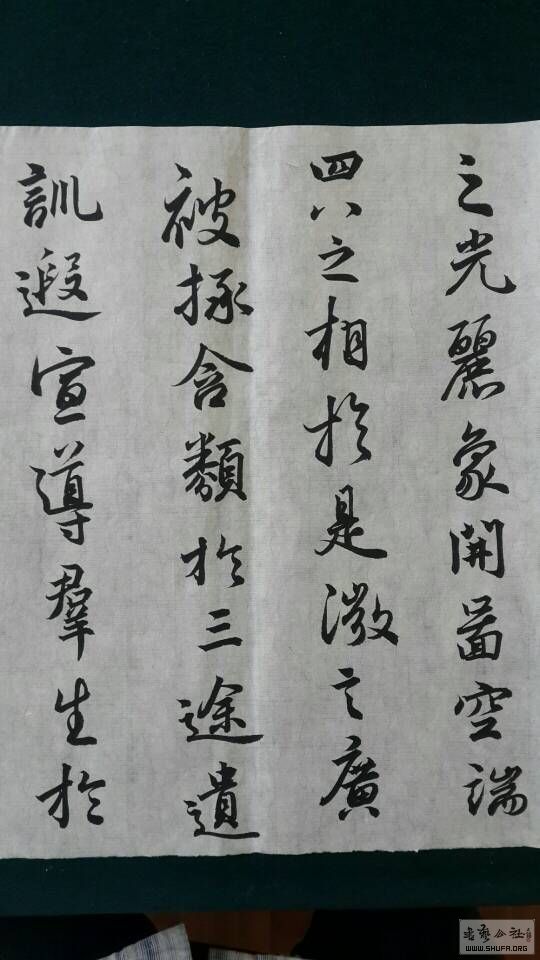 之光麗象開圖空端
四八之相於是微言廣
被拯含類於三途遺
訓遐宣導羣生於
书艺公社
WWW.SHUFA.ORG